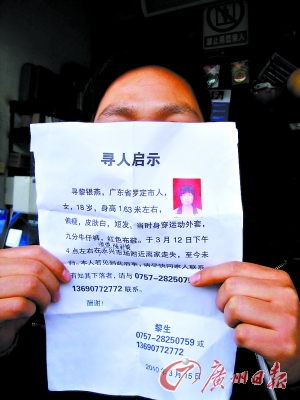 寻人启示
寻黎银燕，广东省罗定市人，
女，18岁，身高1.63米左右，
偏瘦，皮肤白，短发，当时身穿运动外套，
九分牛仔裤，红色布鞋。于3月12日下午
4点左右在永兴市场附近离家走失，至今未
归。本人若见到此启示，请尽快回家人联系
有知其下落者，请与0757-28250759或
13690772772联系。
酬谢！
黎生
0757-28250759或
13690772772
2010年3月15日
广州日报